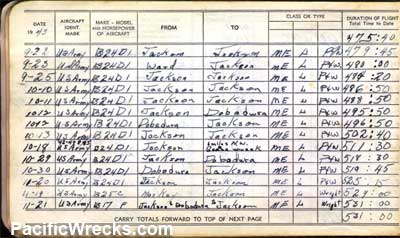 DATE
19 43
AIRCRAFT IDENT. MARK
MAKE - MODEL AND HORSEPOWER OF AIRCRAFT
FROM
TO
CLASS OR TYPE
DURATION OF FLIGHT
Total Time to Date
475:40
9-22 U.S Army B24D1 Jackson Jackson ME L P/W 479:45
9-23 U.S Army B24D1 Ward Jackson ME L P/W
9-25 U.S Army B24D1 Jackson Jackson ME L P/W
10-10 U.S Army B24D1 Jackson Jackson ME L P/W 486:50
10-11 U.S Army B24D1 Jackson Jackson ME L P/W 488:50
10-12 U.S Army B24D1 Jackson Dobadura ME L P/W 495:50
U.S Army B24D1 Dobadura Jackson ME L P/W 496:50
10-13 U.S Army B24D1 Jackson Jackson ME L P/W 502:40
10-18 U.S Army B24D1 Jackson ME L P/W 511:30
10-29 U.S Army B24D1 Jackson Dobadura ME L P/W 518:30
10-30 U.S Army B24D1 Dobadura Jackson ME L P/W 519:45
U.S Army B24D1 Jackson Jackson ME L P/W
U.S Army Jackson ME L 529:00
11-21 U.S Army B17 F Jackson Dobadura & Jackson ME L 531:00
CARRY TOTALS FORWARD TO TOP OF NEXT PAGE
531:00
PacificWrecks.com
PacificWrecks.com